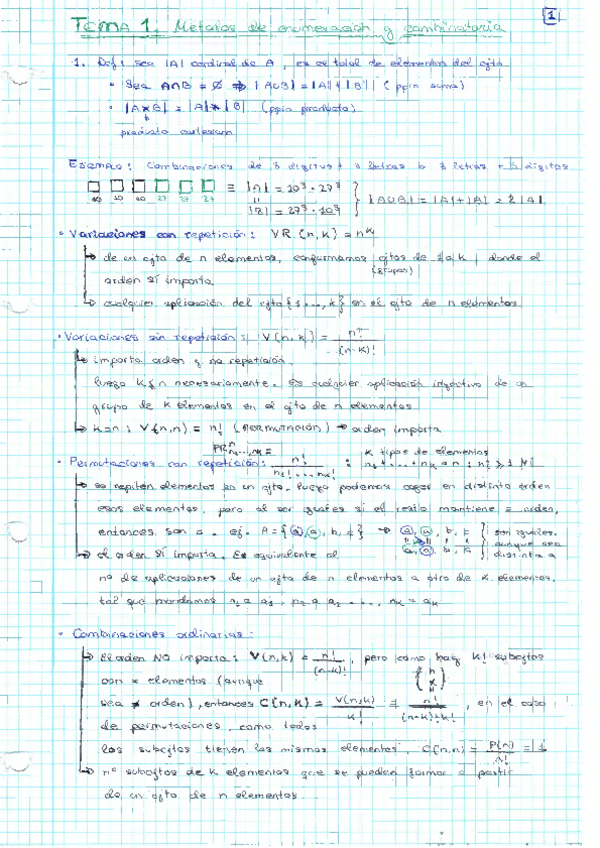 TEMA 1. Métodos de enumeración y combinatoria
1
1. Def: sea |A| cardinal de A, es el total de elementos del cjto
· Sea A∩B = ∅ ⇒ |A∪B| = |A|+|B| (ppio suma)
· |A×B| = |A|*|B| (ppio producto)
producto cartesiano
Ejemplo: Combinaciones de 3 digitos + 3 letras o 3 letras + 3 digitos
□ □ □ □ □ □ ≡ |A| = 10³·27³
10 10 10 27 27 27 |B| = 27³·10³ } |A∪B| = |A|+|B| = 2|A|
· Variaciones con repetición: VR(n,k) = n^k
↳ de un cjto de n elementos, conformamos cjtos de k, donde el
(grupos)
orden sí importa
↳ cualquier aplicación del cjto {1,...,k} en el cjto de n elementos
· Variaciones sin repetición: V(n,k) = n!/(n-k)!
↳ importa orden y no repetición
luego k≤n necesariamente. Es cualquier aplicación inyectiva de un
grupo de k elementos en el cjto de n elementos
↳ k=n: V(n,n) = n! (PERMUTACIÓN) → orden importa
· Permutaciones con repetición: PR^n_{n₁,...,nk} = n!/(n₁!...nk!) : k tipos de elementos n₁+...+nk = n; ni ≥ 1 ∀i
↳ se repiten elementos en un cjto, luego podemos coger en distinto orden
esos elementos, pero al ser iguales si el resto mantiene = orden,
entonces son =. ej. A={a,a,b,c} → a, a, b, c } son iguales,
a, a, b, c aunque sea
↳ el orden SÍ importa. Es equivalente al distinta a
nº de aplicaciones de un cjto de n elementos a otro de k elementos,
tal que mandamos n₁ a a₁, n₂ a a₂ ..., nk a ak
· Combinaciones ordinarias:
↳ El orden NO importa: V(n,k) = n!/(n-k)!, pero como hay k! subcjtos
con = elementos (aunque
sea ≠ orden), entonces C(n,k) = V(n,k)/k! = n!/((n-k)!k!), en el caso
de permutaciones, como todos
los subcjtos tienen los mismos elementos, C(n,n) = P(n)/n! = 1
↳ nº subcjtos de k elementos que se pueden formar a partir
de un cjto de n elementos.